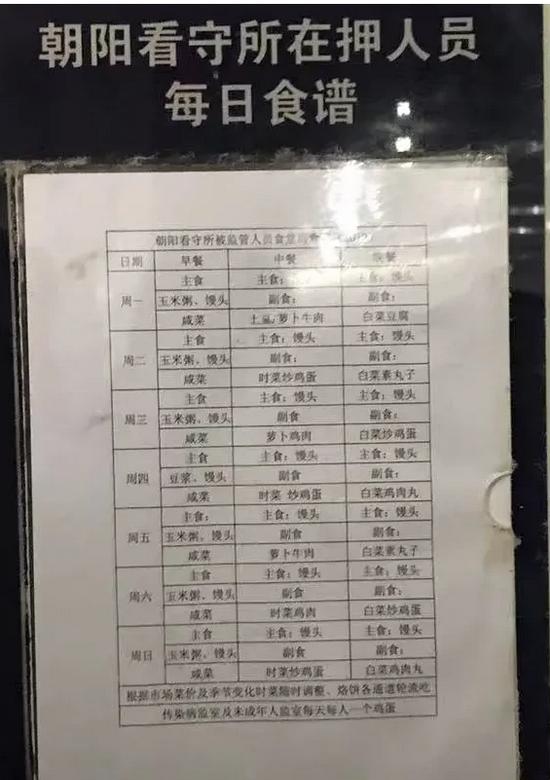 朝阳看守所在押人员
每日食谱
朝阳看守所被监管人员食堂
日期 早餐 中餐 晚餐
主食 主食: 主食: 馒头
周一 玉米粥、馒头 副食: 副食:
咸菜 土豆/萝卜牛肉 白菜豆腐
主食 主食: 馒头 主食: 馒头
周二 玉米粥、馒头 副食: 副食:
咸菜 时菜炒鸡蛋 白菜素丸子
主食 主食: 馒头 主食: 馒头
周三 玉米粥、馒头 副食 副食:
咸菜 萝卜鸡肉 白菜炒鸡蛋
主食 主食: 馒头 主食: 馒头
周四 豆浆、馒头 副食 副食:
咸菜 时菜 炒鸡蛋 白菜鸡肉丸
主食: 主食: 馒头 主食: 馒头
周五 玉米粥、馒头 副食 副食:
咸菜 萝卜牛肉 白菜素丸子
主食 主食: 馒头 主食: 馒头
周六 玉米粥、馒头 副食 副食:
咸菜 时菜鸡肉 白菜炒鸡蛋
主食 主食: 馒头 主食: 馒头
周日 玉米粥、馒头 副食 副食:
咸菜 时菜炒鸡蛋 白菜鸡肉丸
根据市场菜价及季节变化时菜随时调整、烙饼各通道轮流吃
传染病监室及未成年人监室每天每人一个鸡蛋